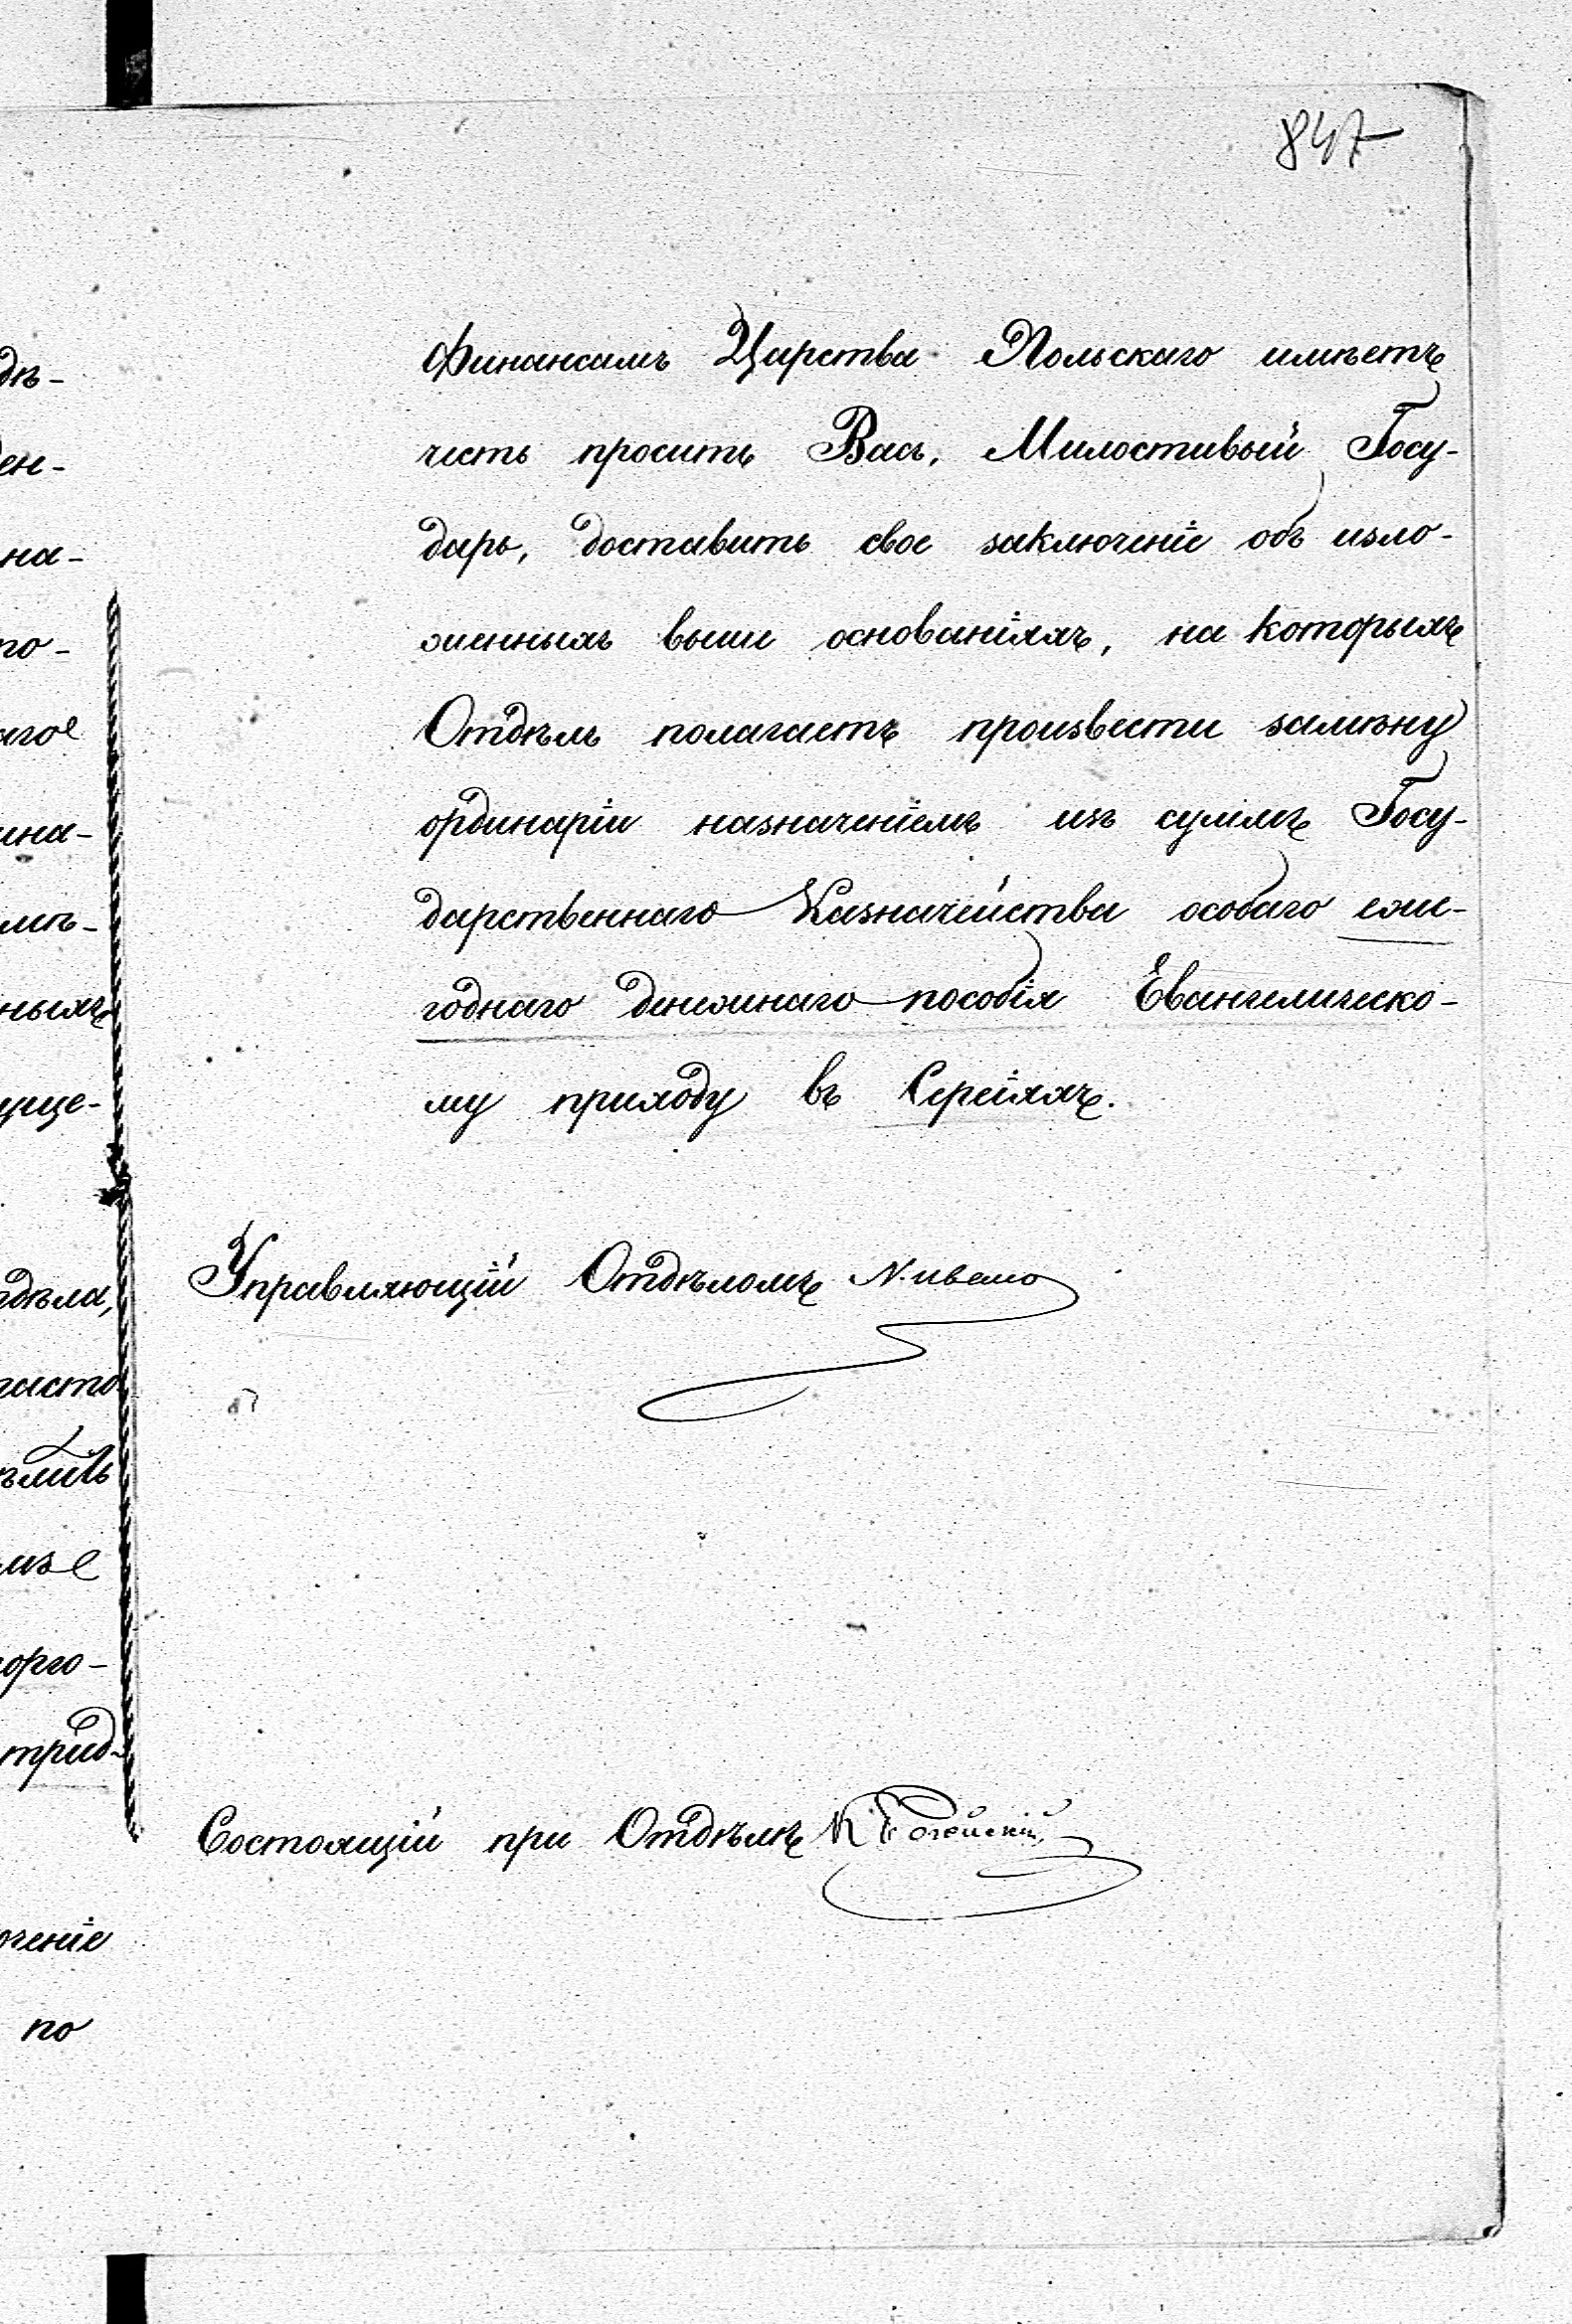 847
Финансамъ Царства Польскаго имѣетъ
честь просить Васъ, Милостивый Госу-
дарь, доставить свое заключеніе объ изло-
женныхъ выше основаніяхъ, на которыхъ
Отдѣлъ полагаетъ произвести замѣну
ординаріи назначеніемъ изъ суммъ Госу-
дарственнаго Казначейства особаго еже-
годнаго денежнаго пособія Евангелическо-
му приходу въ Сереіяхъ.
Управляющій Отдѣломъ
Состоящій при Отдѣлѣ
дѣ-
ен-
на-
по-
аго
ина-
мѣ-
ныхъ
уще-
дѣла,
часто
изъ
торго-
трид-
ченіе
по